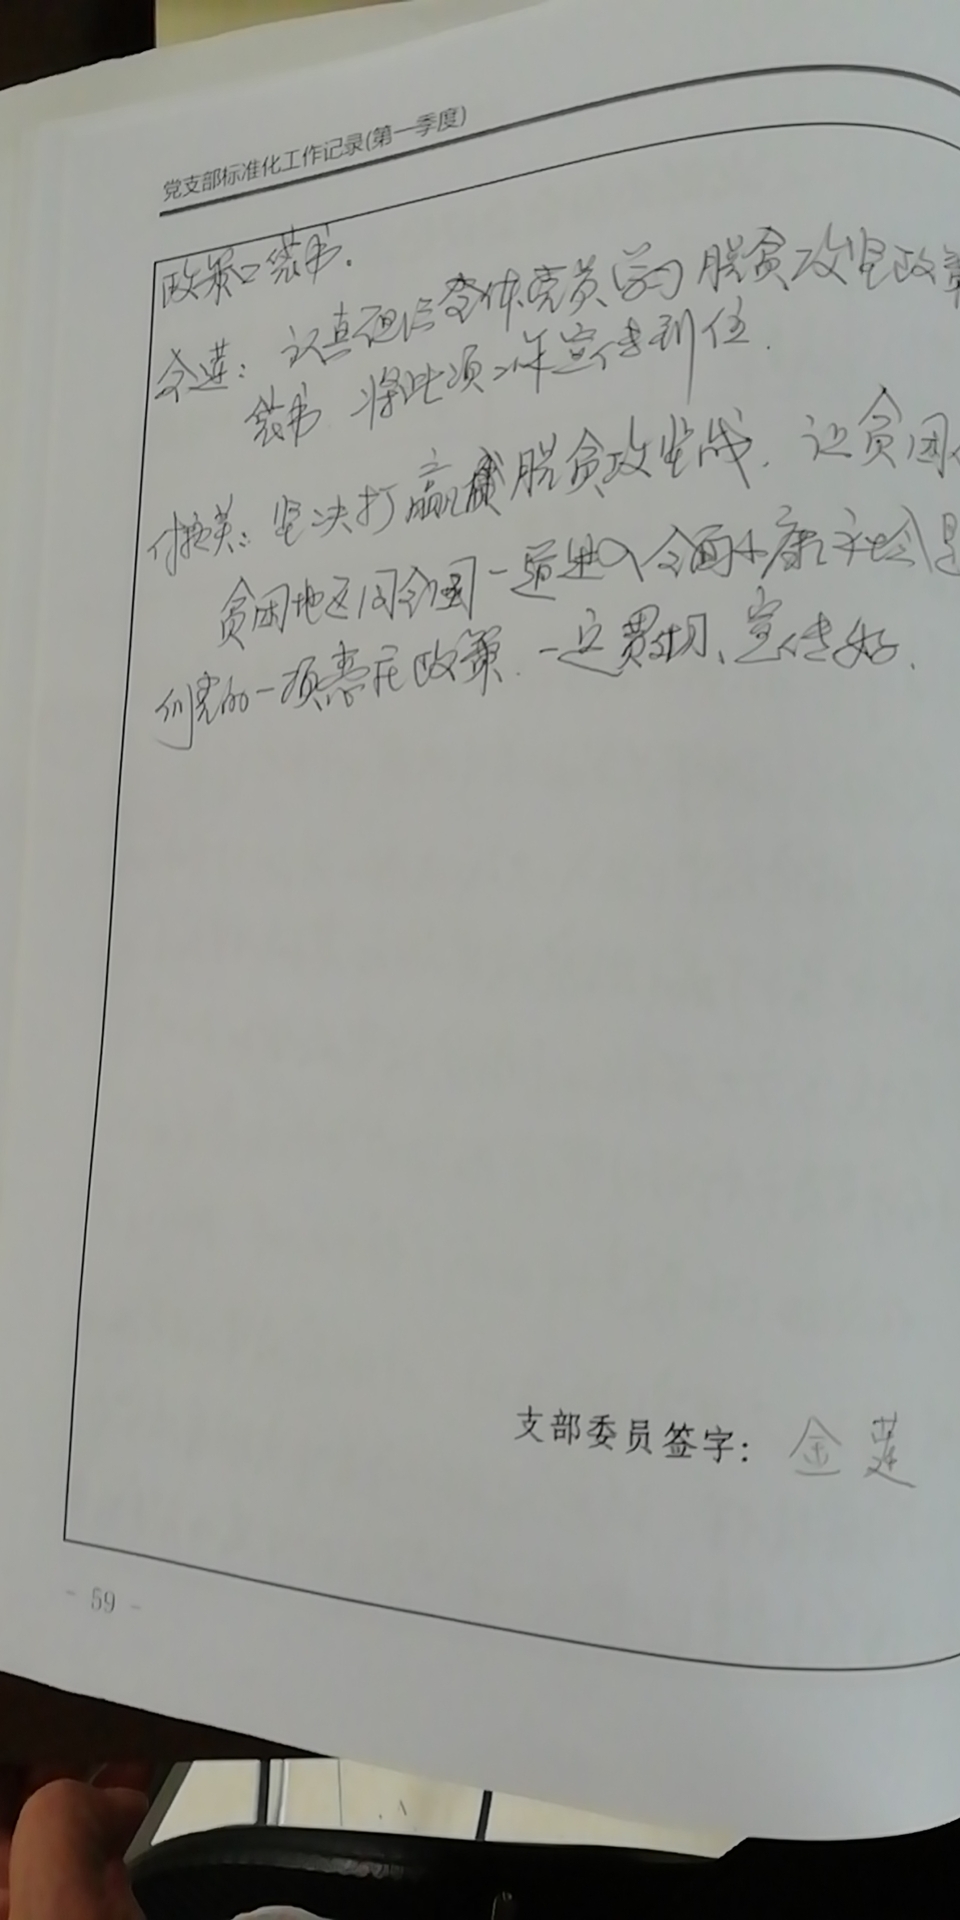 党支部标准化工作记录(第一季度)
政策口袋书.
金莲: 认真组织全体党员学习脱贫攻坚政策
袋书 将此项工作宣传到位.
英: 坚决打赢脱贫攻坚战. 让贫困
贫困地区同全国一道进入全面小康社会是
们党的一项惠民政策. 一定贯彻、宣传好.
支部委员签字: 金莲
- 59 -